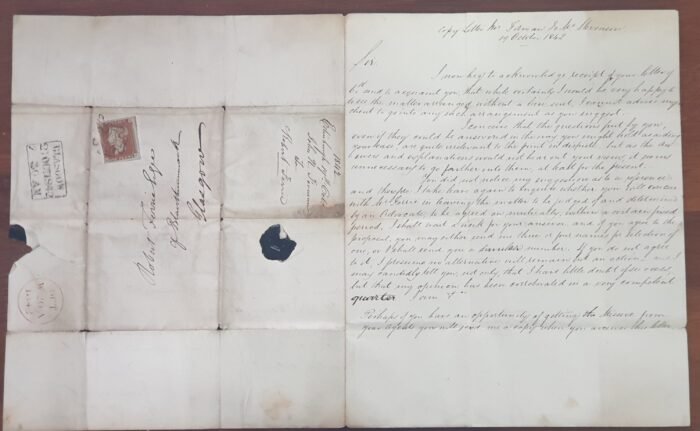 Copy Letter Mr Firman to Mr Stevenson
19 October 1842
Sir,
I now beg to acknowledge receipt of your letter of
and to acquaint you that while certainly I would be very happy to
see the matter arranged without a law suit, I cannot advise my
client to go into any such arrangement as you suggest.
I conceive that the questions put by you,
even if they could be answered in the way you might hold as aiding
your case, are quite irrelevant to the point in dispute, but as the
and explanations would not bear out your views, it seems
unnecessary to go farther into them, at least for the present.
You did not notice my suggestion as to a reference
and therefore I take leave again to inquire whether you will concur
with Mr in leaving the matter to be judged of and determined
by an Advocate to be agreed on mutually, within a certain fixed
period. I shall wait a week for your answer, and if you agree to the
proposal, you may either send me three or four names for selection of
one, or I shall send you a similar number. If you do not agree
to it, I presume no alternative will remain but an action, and I
may candidly tell you, not only, that I have little doubt of success,
but that my opinion has been corroborated in a very competent
quarter I am &c
Perhaps if you have an opportunity of getting the
your agent you will send me a copy when you answer this letter
Robert
of
Glasgow
1842
Mr
the
GLASGOW
OCT 1842